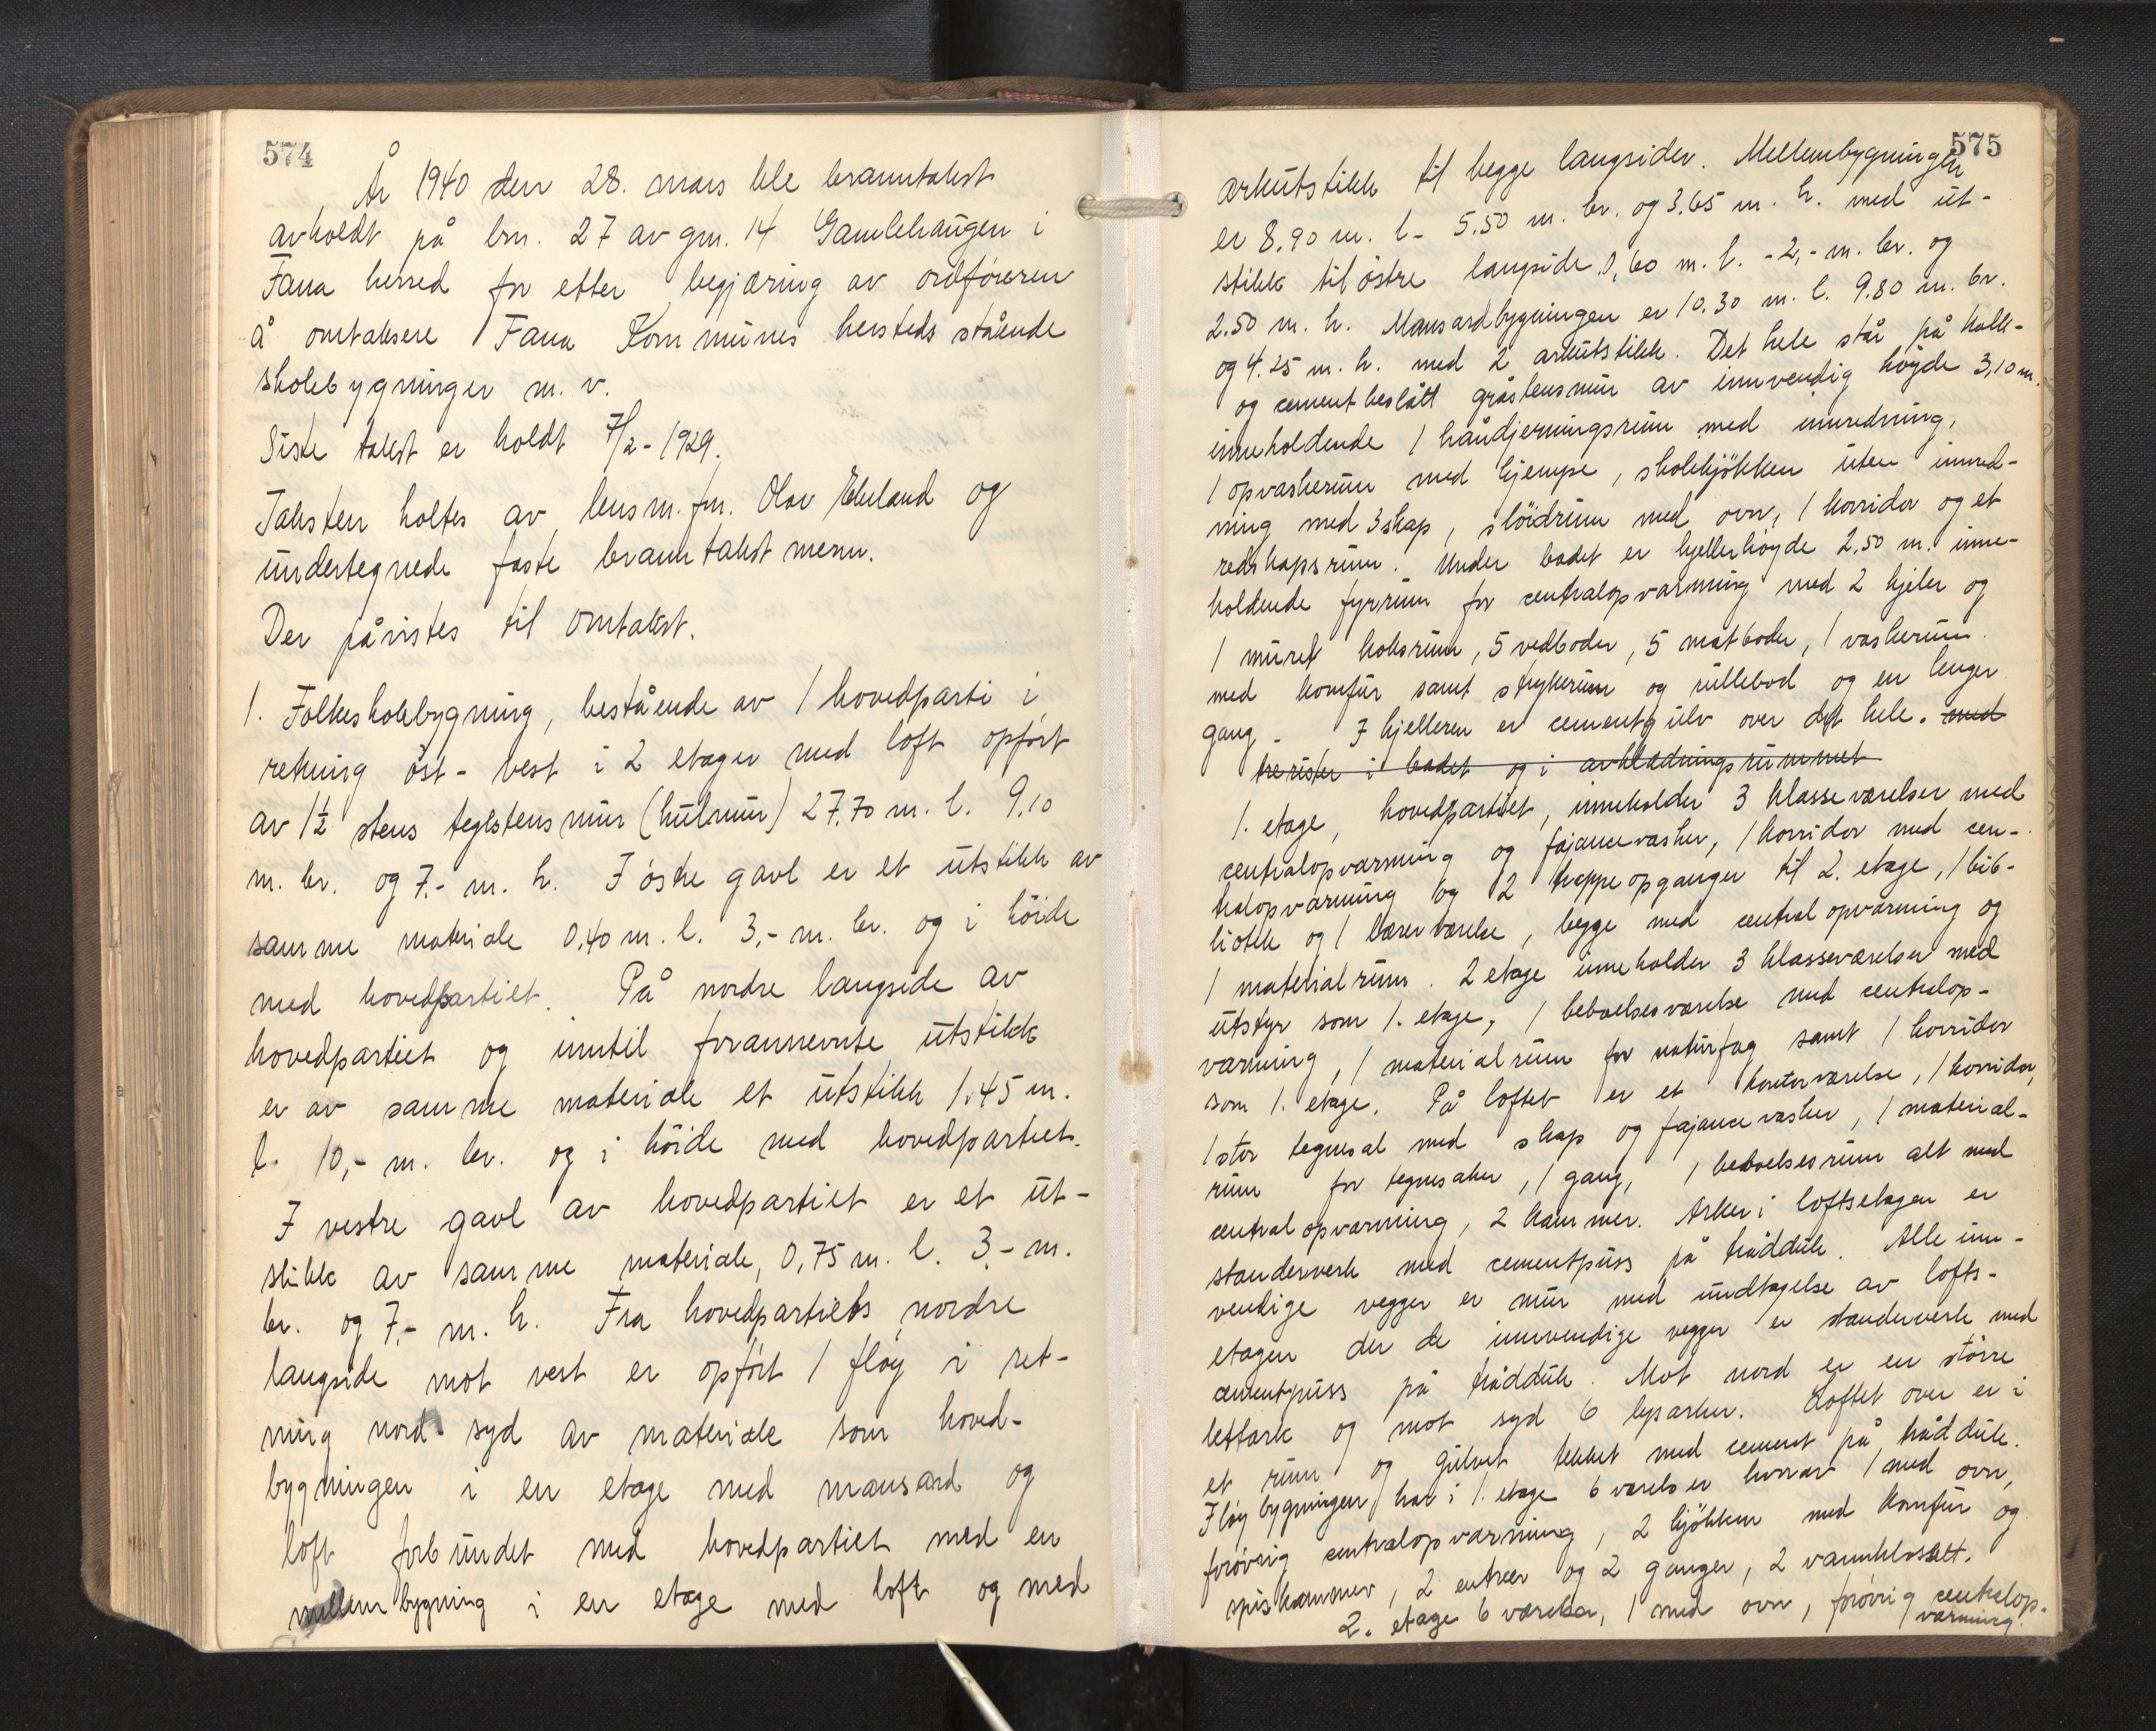 574
År 1940 den 28. mars ble branntakst
avholdt på brn. 27 av grn. 14 Gamlehaugen i
Fana herred for etter begjæring av ordføreren
å omtaksere Fana Kommunes hersteds stående
skolebygninger m. v.
Siste takst er holdt 7/2 - 1929.
Taksten holtes av lensm.fm. Olav Ekeland og
undertegnede faste branntakstmenn.
Der påvistes til omtakst.
1. Folkeskolebygning, bestående av 1 hovedparti i
retning øst - vest i 2 etager med loft opført
av 1½ stens teglstensmur (hulmur) 27,70 m. l. 9,10
m. br. og 7.- m. h. I østre gavl er et utstikk av
samme materiale 0,40 m. l. 3,- m. br. og i høide
med hovedpartiet. På nordre langside av
hovedpartiet og inntil forannevnte utstikk
er av samme materiale et utstikk 1.45 m.
l. 10,- m. br. og i høide med hovedpartiet.
I vestre gavl av hovedpartiet er et ut-
stikk av samme materiale, 0,75 m. l. 3.- m.
br. og 7,- m. h. Fra hovedpartiets nordre
langside mot vest er opført 1 fløy i ret-
ning nord syd av materiale som hoved-
bygningen i en etage med mansard og
loft forbundet med hovedpartiet med en
mellembygning i en etage med loft og med
575
arkutstikk til begge langsider. Mellembygningen
er 8.90 m. l - 5.50 m. br. og 3.65 m. h. med ut-
stikk til østre langside 0,60 m. l. - 2,- m. br. og
2.50 m. h. Mansardbygningen er 10.30 m. l. 9.80 m. br.
og 4.25 m. h. med 2 arkutstikk. Det hele står på kalk-
og cementbeslått gråstensmur av innvendig høyde 3,10 m.
inneholdende 1 håndjerningsrum med innredning,
1 opvaskerum med kjempe, skolekjøkken uten innred-
ning med 3 skap, sløidrum med ovn, 1 korridor og et
redskapsrum. Under badet er kjellerhøyde 2.50 m. inne-
holdende fyrrum for centralopvarming med 2 kjeler og
1 muret koksrum, 5 vedboder, 5 matboder, 1 vaskerum
med komfur samt strykerum og rullebod og en lenger
gang. I kjelleren er cementgulv over det hele. med
trerister i badet og i avklædningsrummet
1. etage, hovedpartiet, inneholder 3 klasseværelser med
centralopvarming og fajancevasker, 1 korridor med cen-
tralopvarming og 2 trappeopganger til 2. etage, 1 bib-
liotek og 1 lærerværelse, begge med centralopvarming og
1 materialrum. 2 etage inneholder 3 klasseværelser med
utstyr som 1. etage, 1 beboelsesværelse med centralop-
varming, 1 materialrum for naturfag samt 1 korridor
som 1. etage. På loftet er et kontorværelse, 1 korridor,
1 stor tegnesal med skap og fajancevasker, 1 material-
rum for tegnesaker, 1 gang, 1 beboelsesrum alt med
centralopvarming, 2 kammer. Arker i loftsetagen er
standerverk med cementpuss på tråddúk. Alle inn-
vendige vegger er mur med undtagelse av lofts-
etagen der de innvendige vegger er standerverk med
cementpuss på tråddúk. Mot nord er en større
lettark og mot syd 6 lysarker. Loftet over er i
et rum og gulvet tekket med cement på tråddúk.
Fløybygningen har i 1. etage 6 værelser hvorav 1 med ovn,
forøvrig centralopvarming, 2 kjøkken med komfur og
spiskammer, 2 entreer og 2 ganger, 2 vannklosett.
2. etage 6 værelser, 1 med ovn, forøvrig centralop-
varming.